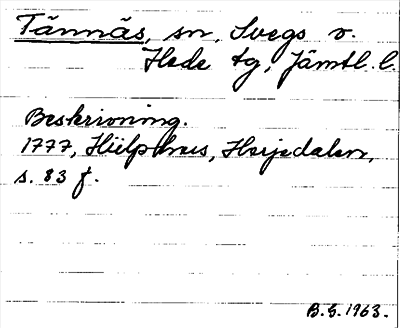 Tännäs, sn, Svegs v.
Hede tg, Jämtl. l.
Beskrivning.
1777, Hülphers, Herjedalen,
s. 83 f.
B.G. 1963.